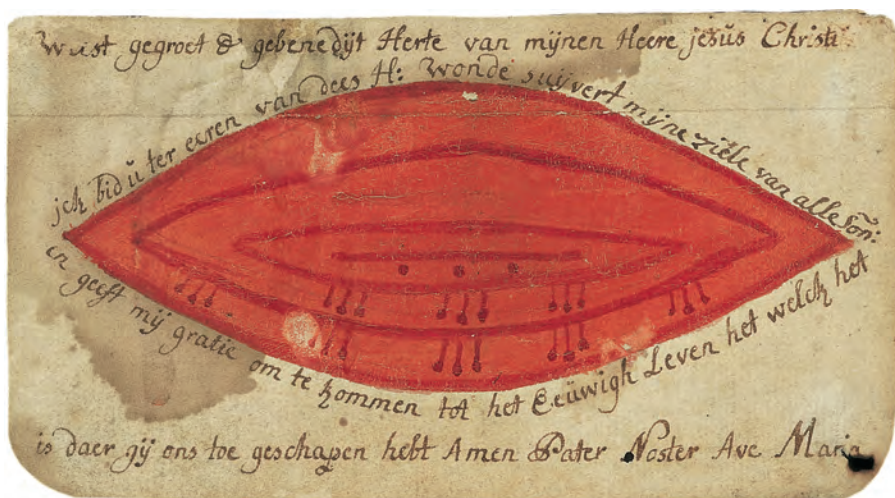 Weist gegroet & gebenedijt Herte van mijnen Heere jesŭs Christi
jck bid ŭ ter eeren van dees H: Wonde suijvert mijne ziele van alle Soñ:
en geeft mij gratie om te kommen tot het Eeŭwigh Leven het welck het
is daer gij ons toe geschapen hebt Amen Pater Noster Ave Maria